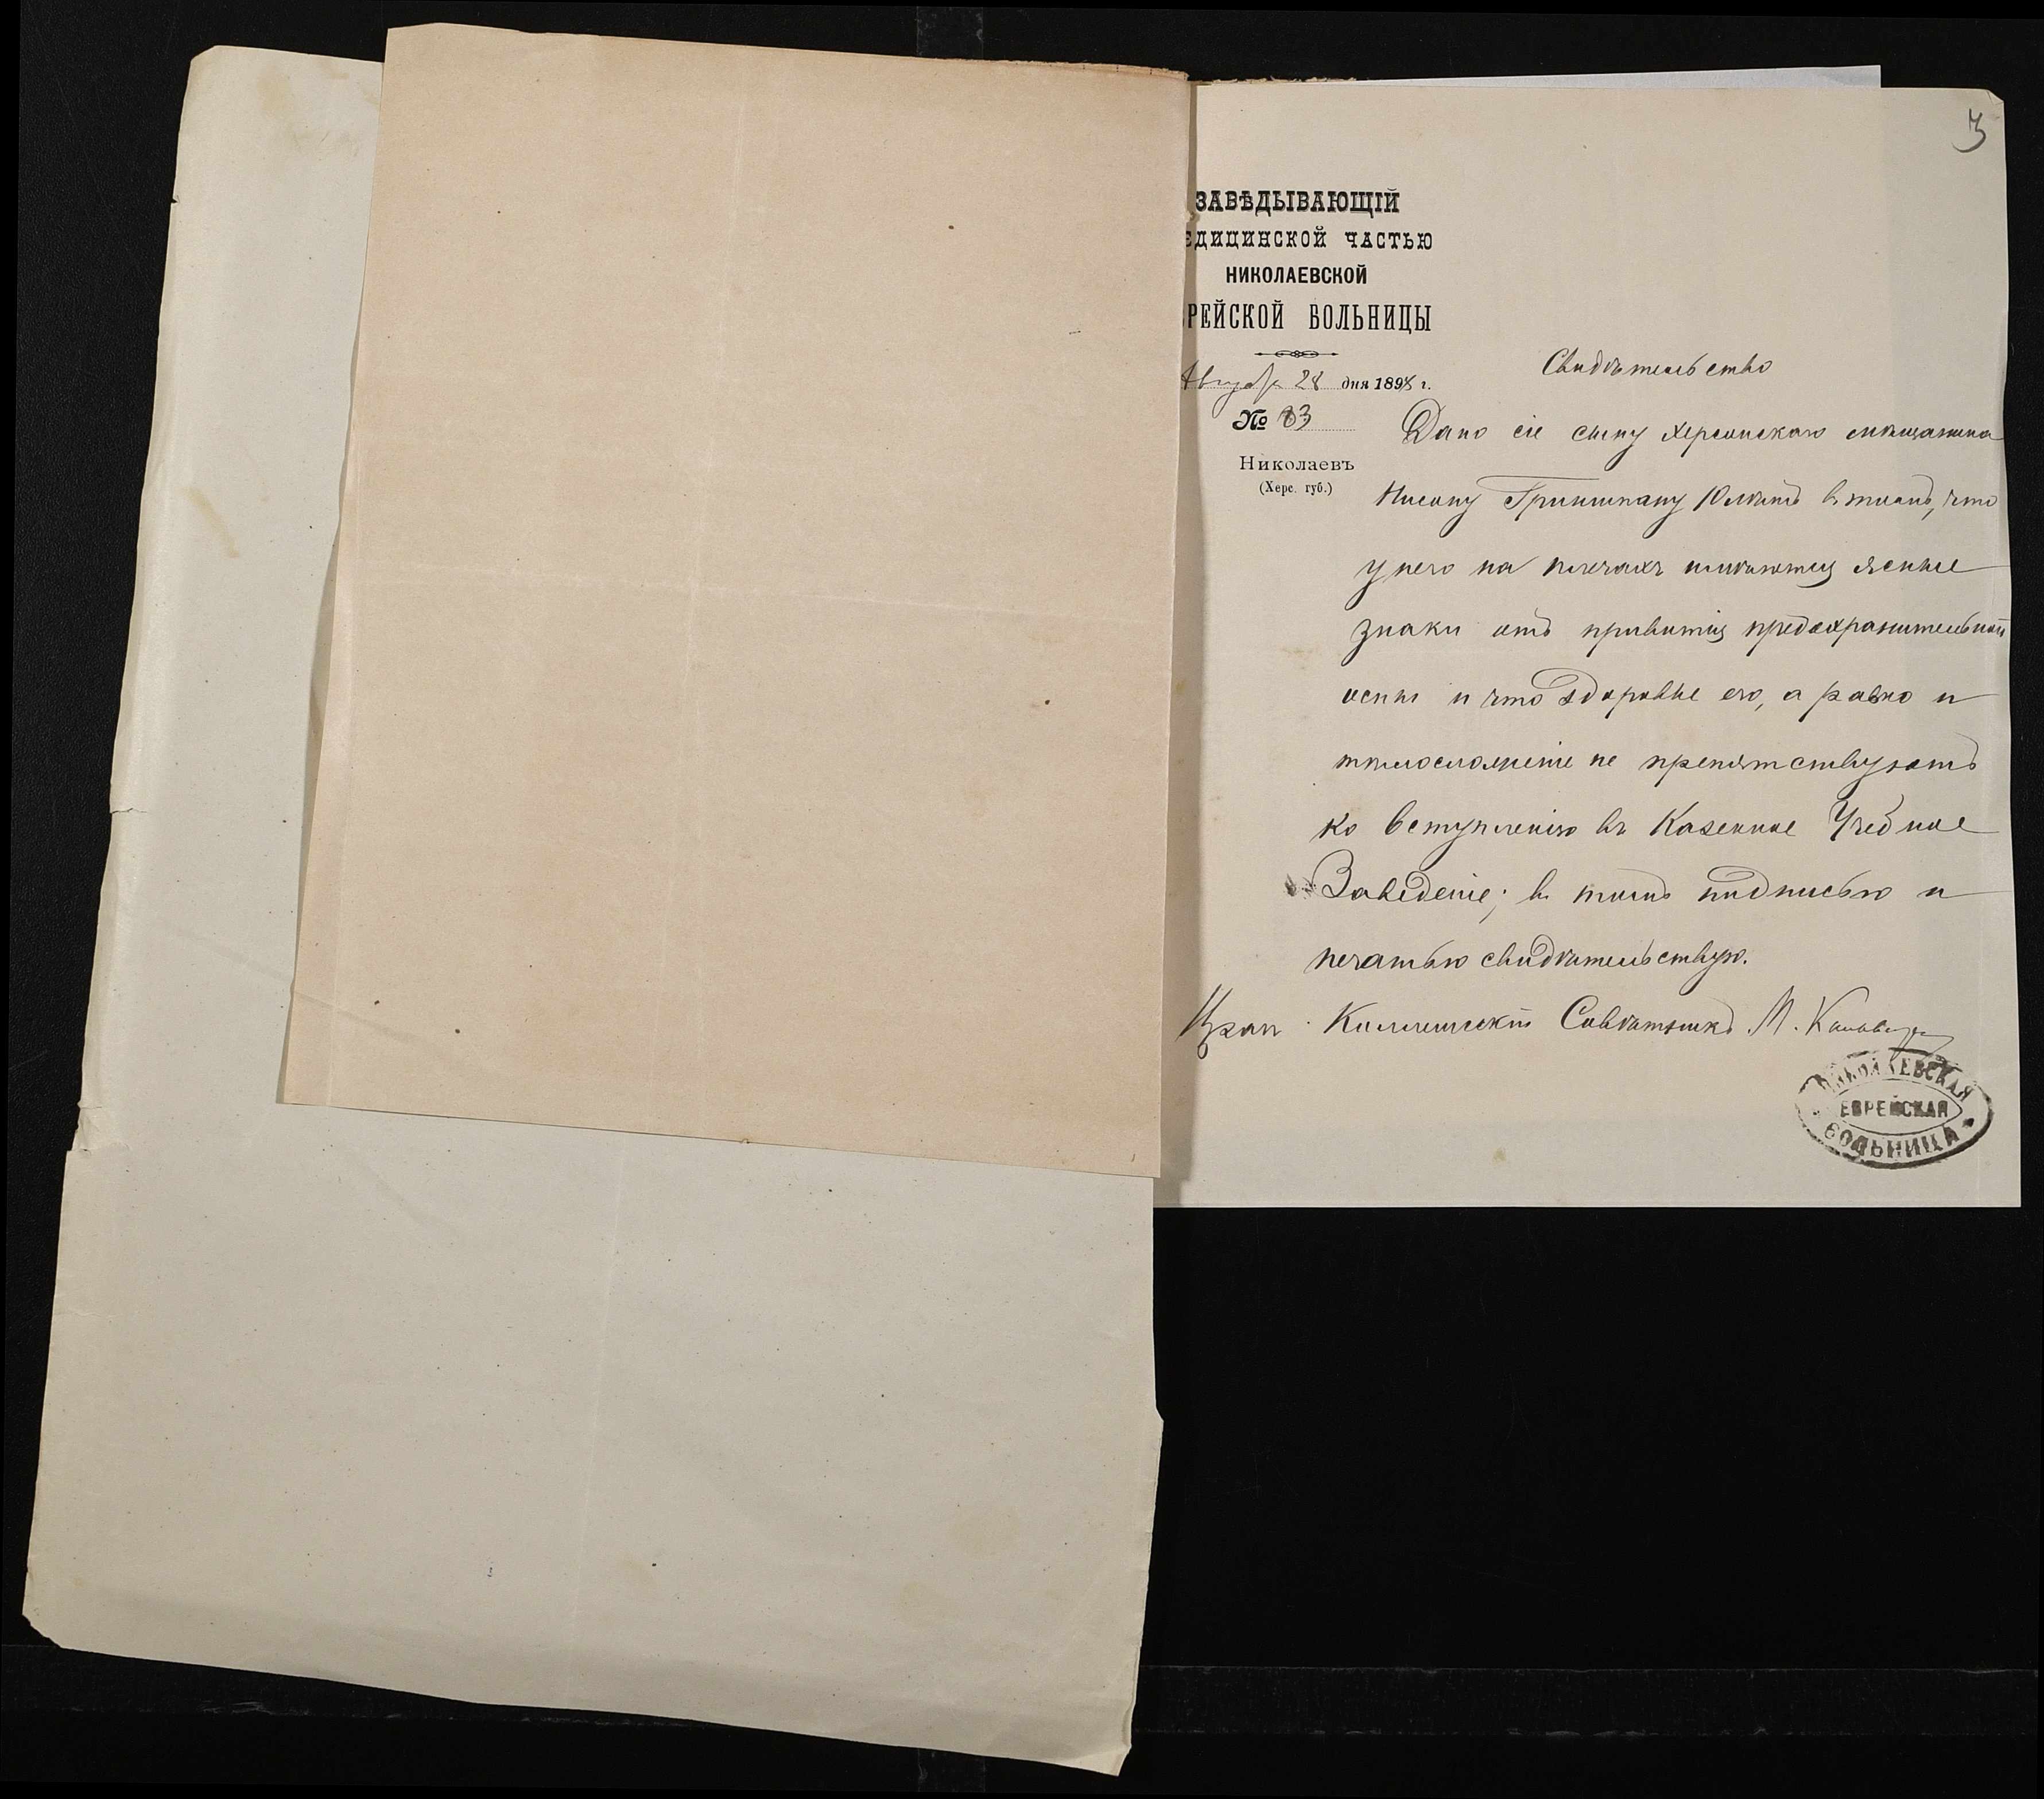 3
ЗАВѢДЫВАЮЩІЙ
ЕДИЦИНСКОЙ ЧАСТЬЮ
НИКОЛАЕВСКОЙ
РЕЙСКОЙ БОЛЬНИЦЫ
Августа 28 дня 1898 г.
№ 83
Николаевъ
(Херс. губ.)
Свидѣтельство
Дано сіе сыну Херсонскаго мѣщанина
Нисону Гриншпану 10 лѣтъ въ томъ, что
у него на плечахъ имѣются ясные
знаки отъ привитія предохранительной
оспы и что здоровье его, а равно и
тѣлосложеніе не препятствуютъ
ко вступленію въ Казенное Учебное
Заведеніе; въ томъ подписью и
печатью свидѣтельствую.
Врачъ Коллежскій Совѣтникъ М.
НИКОЛАЕВСКАЯ
ЕВРЕЙСКАЯ
БОЛЬНИЦА